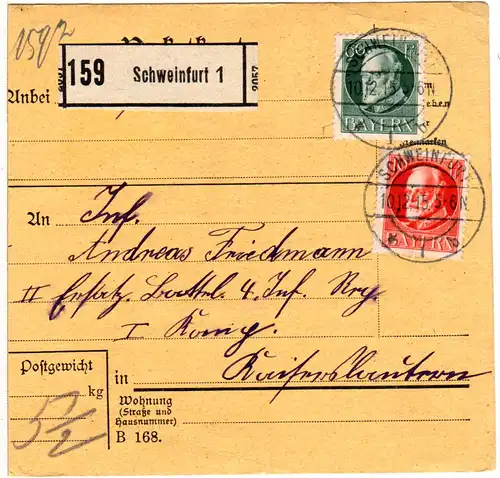 159
159
Schweinfurt 1
2057
Anbei
60
BAYERN
SCHWEINFURT
10.12.15.5-6N
BAYERN
SCHWEINFURT
10.12.15.5-6N
An Inf.
Andreas Friedmann
II Ersatz. Battel. 4. Inf. Rg.
I Komp.
in Kaiserslautern
Postgewicht
kg
5 1/2
Wohnung
(Straße und
Hausnummer)
B 168.